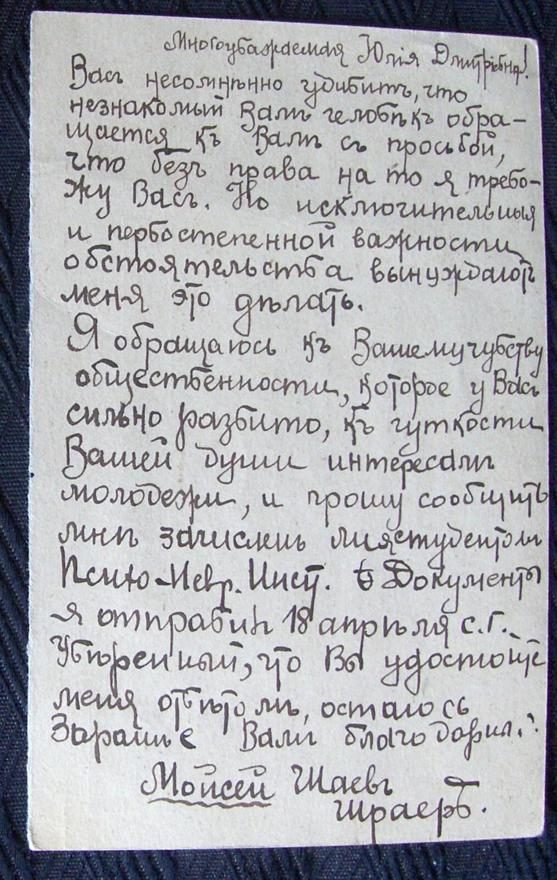 Многоуважаемая Юлія Дмитріевна!
Васъ несомнѣнно удивитъ, что
незнакомый Вамъ человѣкъ обра-
щается къ Вамъ съ просьбой,
что безъ права на то я трево-
жу Васъ. Но исключительныя
и первостепенной важности
обстоятельства вынуждаютъ
меня это дѣлать.
Я обращаюсь къ Вашему чувству
общественности, которое у Васъ
сильно развито, къ чуткости
Вашей души интересамъ
молодежи, и прошу сообщить
мнѣ зачисленъ ли я студентомъ
Психо-Невр. Инст. Документы
я отправилъ 18 апрѣля с.г.
Увѣренный, что Вы удостоите
меня отвѣтомъ, остаюсь
Заранѣе Вамъ благодарный
Мойсей Шаевъ
Шраеръ.